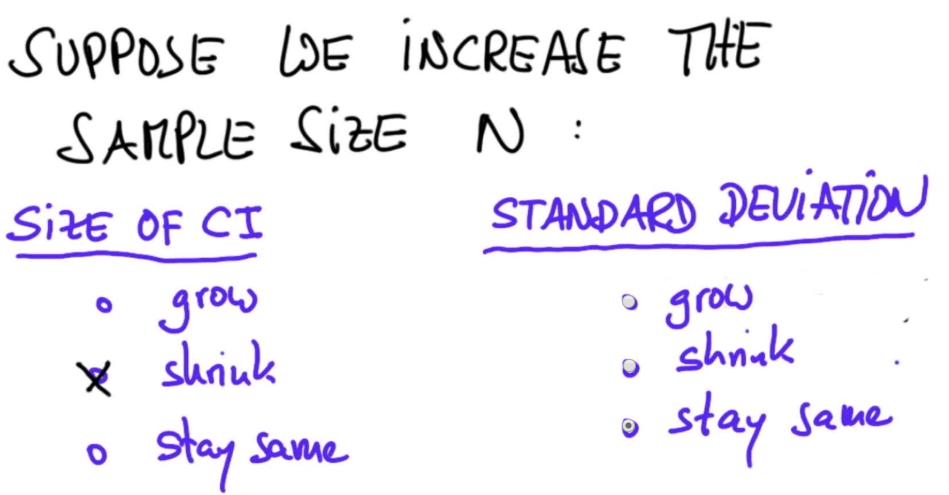 SUPPOSE WE INCREASE THE
SAMPLE SIZE N :
SIZE OF CI
grow
shrink
stay same
STANDARD DEVIATION
grow
shrink
stay same